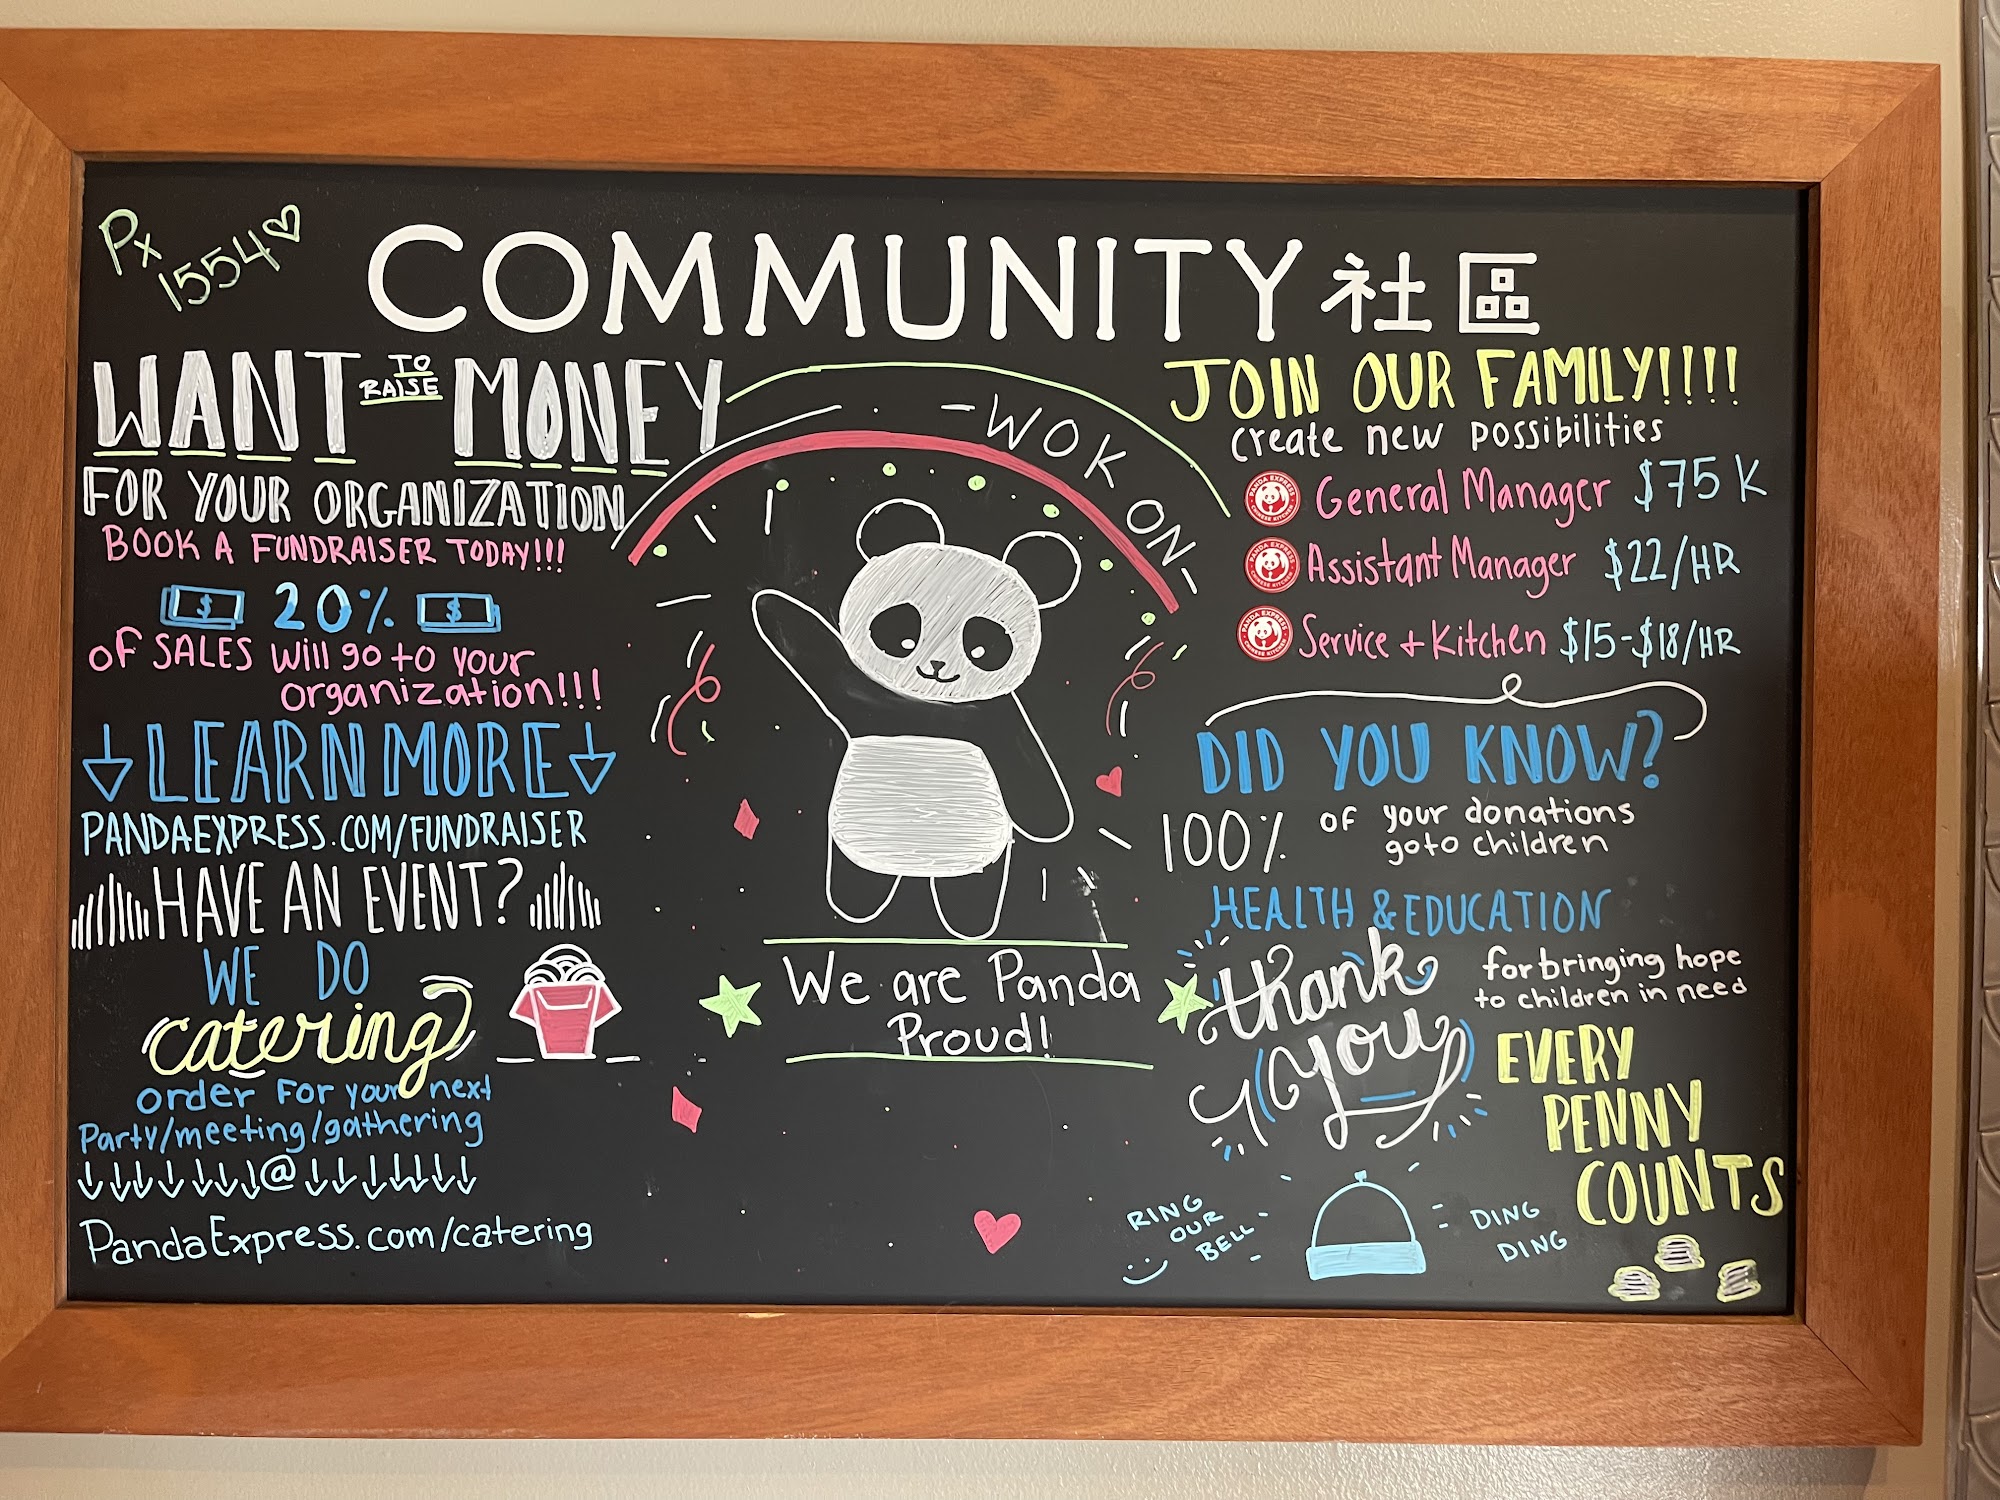 Px
1554
COMMUNITY 社區
WANT TO RAISE MONEY
FOR YOUR ORGANIZATION
BOOK A FUNDRAISER TODAY!!!
$ 20% $
OF SALES will go to your
organization!!!
LEARN MORE
PANDAEXPRESS.COM/FUNDRAISER
HAVE AN EVENT?
WE DO
catering
order For your next
Party/meeting/gathering
@
PandaExpress.com/catering
-WOK ON-
We are Panda
Proud!
JOIN OUR FAMILY!!!!
create new possibilities
General Manager $75K
Assistant Manager $22/HR
Service + Kitchen $15-$18/HR
DID YOU KNOW?
100% of your donations
go to children
HEALTH & EDUCATION
thank
you
for bringing hope
to children in need
EVERY
PENNY
COUNTS
RING
OUR
BELL
DING
DING